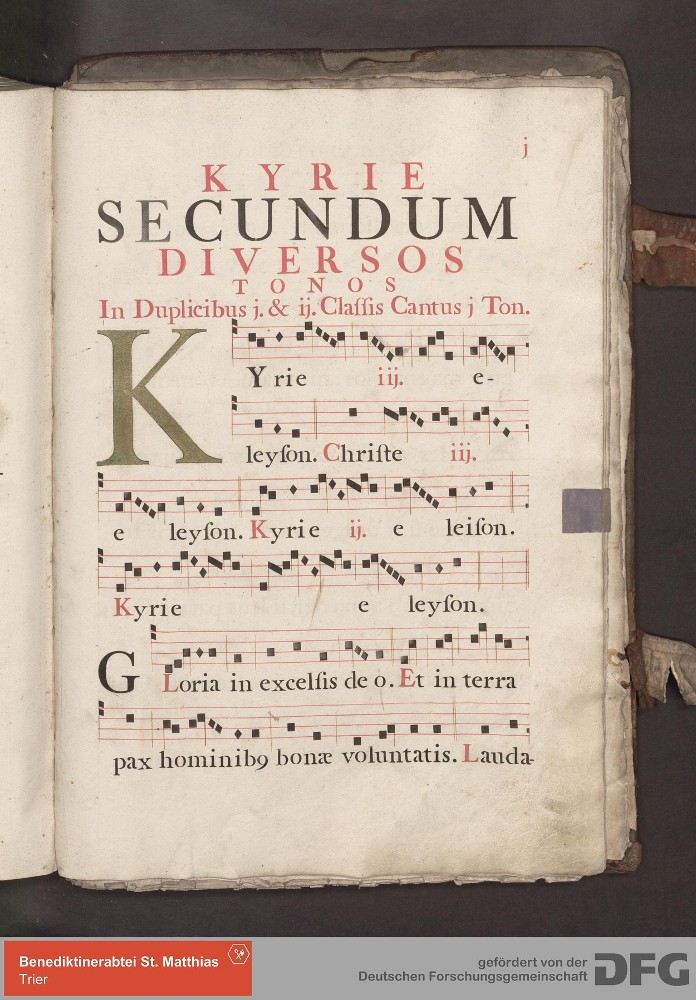 j
KYRIE
SECUNDUM
DIVERSOS
TONOS
In Duplicibus j. & ij. Claſsis Cantus j Ton.
KYrie iij. e-
leyſon. Chriſte iij.
e leyſon. Kyrie ij. e leiſon.
Kyrie e leyſon.
GLoria in excelſis deo. Et in terra
pax hominibꝯ bonæ voluntatis. Lauda-
Benediktinerabtei St. Matthias
Trier
gefördert von der
Deutschen Forschungsgemeinschaft
DFG